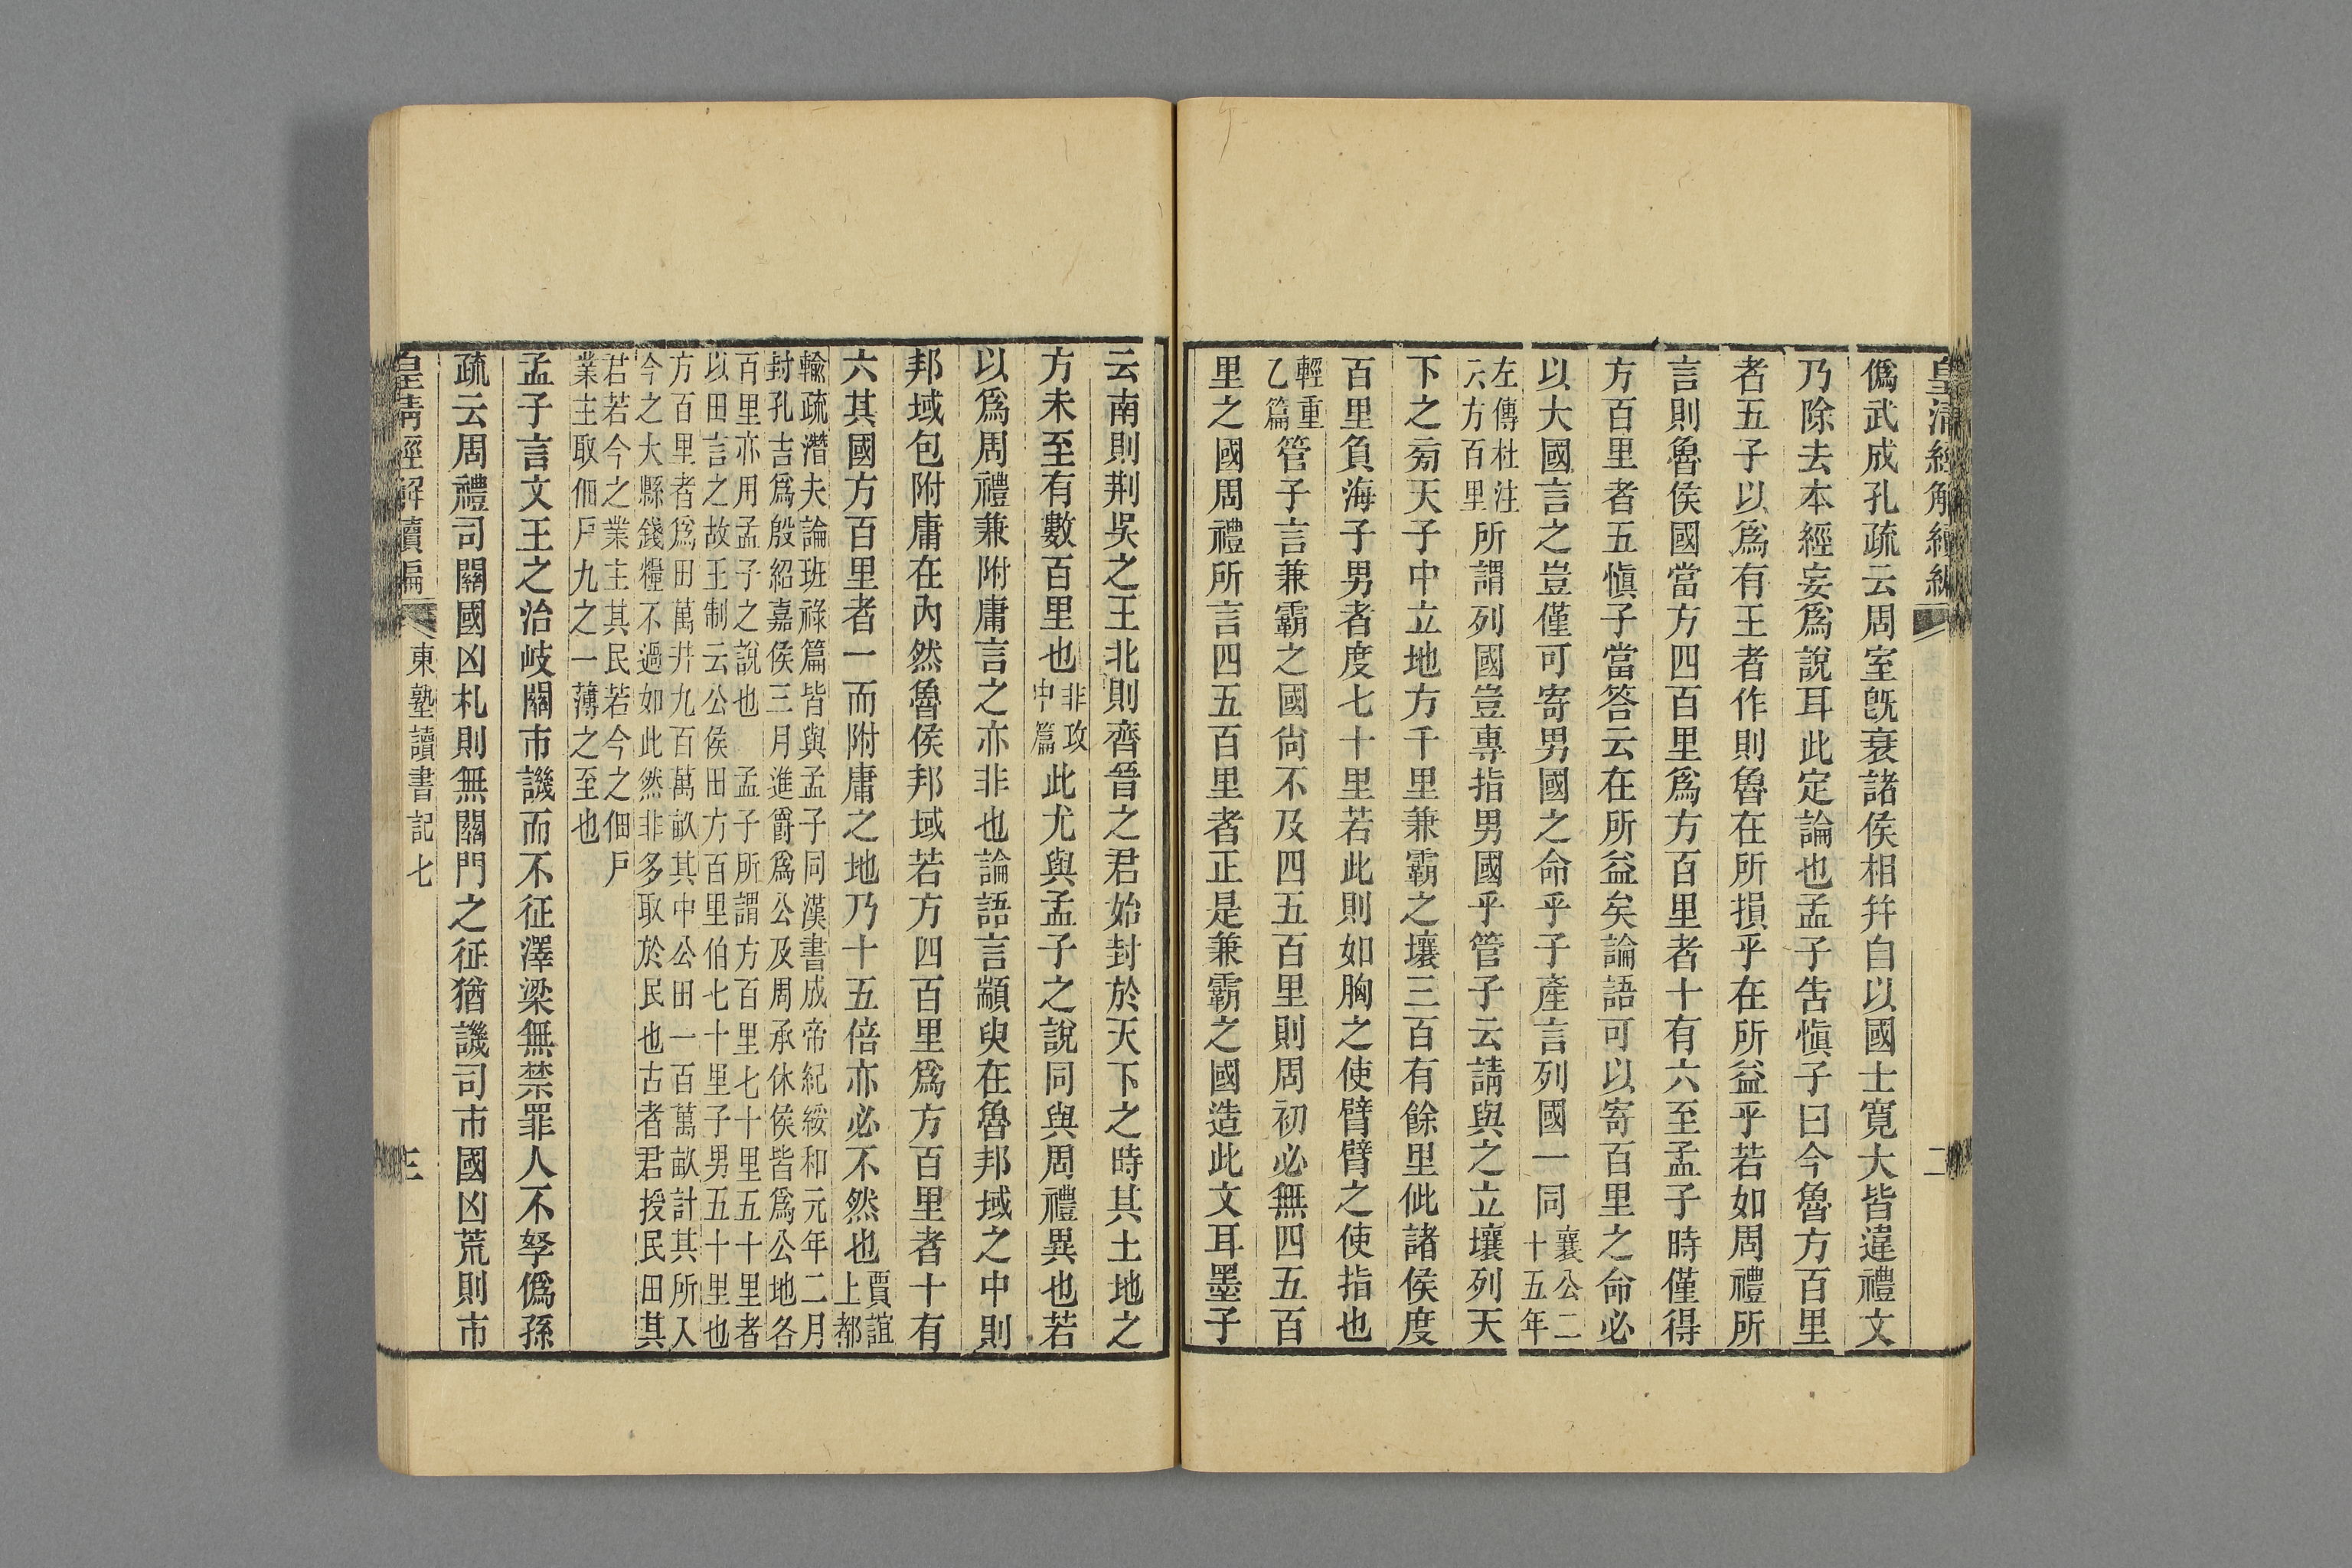 皇清經解續編
二
僞武成孔疏云周室旣衰諸侯相幷自以國土寬大皆違禮文
乃除去本經妄爲說耳此定論也孟子告愼子曰今魯方百里
者五子以爲有王者作則魯在所損乎在所益乎若如周禮所
言則魯侯國當方四百里爲方百里者十有六至孟子時僅得
方百里者五愼子當答云在所益矣論語可以寄百里之命必
以大國言之豈僅可寄男國之命乎子產言列國一同襄公二十五年
左傳杜注云方百里所謂列國豈專指男國乎管子云請與之立壤列天
下之旁天子中立地方千里兼霸之壤三百有餘里佌諸侯度
百里負海子男者度七十里若此則如胸之使臂臂之使指也
輕重乙篇管子言兼霸之國尙不及四五百里則周初必無四五百
里之國周禮所言四五百里者正是兼霸之國造此文耳墨子
云南則荆吳之王北則齊晉之君始封於天下之時其土地之
方未至有數百里也非攻中篇此尤與孟子之說同與周禮異也若
以爲周禮兼附庸言之亦非也論語言顓臾在魯邦域之中則
邦域包附庸在內然魯侯邦域若方四百里爲方百里者十有
六其國方百里者一而附庸之地乃十五倍亦必不然也賈誼上都
輸疏潛夫論班祿篇皆與孟子同漢書成帝紀綏和元年二月
封孔吉爲殷紹嘉侯三月進爵爲公及周承休侯皆爲公地各
百里亦用孟子之說也 孟子所謂方百里七十里五十里者
以田言之故王制云公侯田方百里伯七十里子男五十里也
方百里者爲田萬井九百萬畝其中公田一百萬畝計其所入
今之大縣錢糧不過如此然非多取於民也古者君授民田其
君若今之業主其民若今之佃戶
業主取佃戶九之一薄之至也
孟子言文王之治岐關市譏而不征澤梁無禁罪人不孥僞孫
疏云周禮司關國凶札則無關門之征猶譏司市國凶荒則市
皇淸經解續編
東塾讀書記七
三